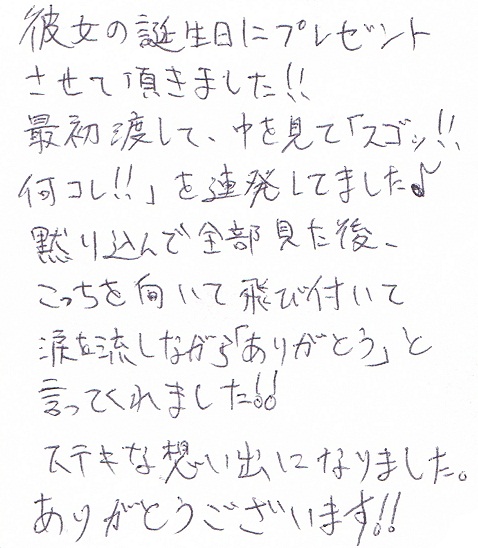 彼女の誕生日にプレゼント
させて頂きました!!
最初渡して、中を見て「スゴッ!!
何コレ!!」を連発してました♪
黙り込んで全部見た後、
こっちを向いて飛び付いて
涙を流しながら「ありがとう」と
言ってくれました!!
ステキな想い出になりました。
ありがとうございます!!